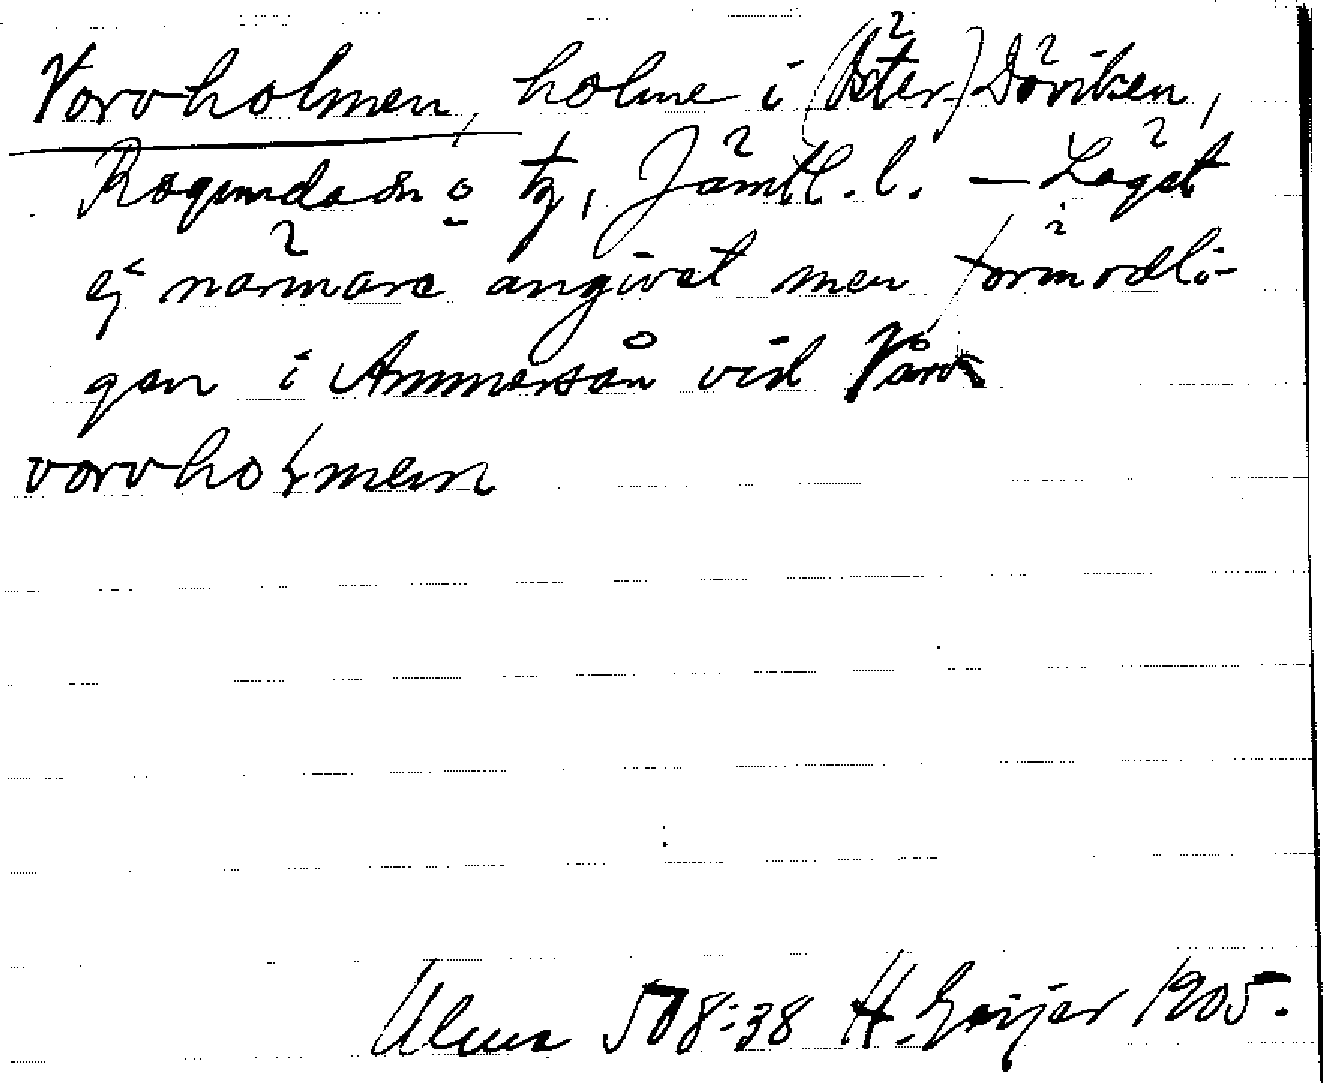 Vorvholmen, holme i (Öster-)Döviken,
Ragunda sn o tg, Jämtl. l. – Läget
ej närmare angivet men förmodli-
gen i Ammerån vid
vorvholmen
Ulma 508:38 H. Geijer 1905.